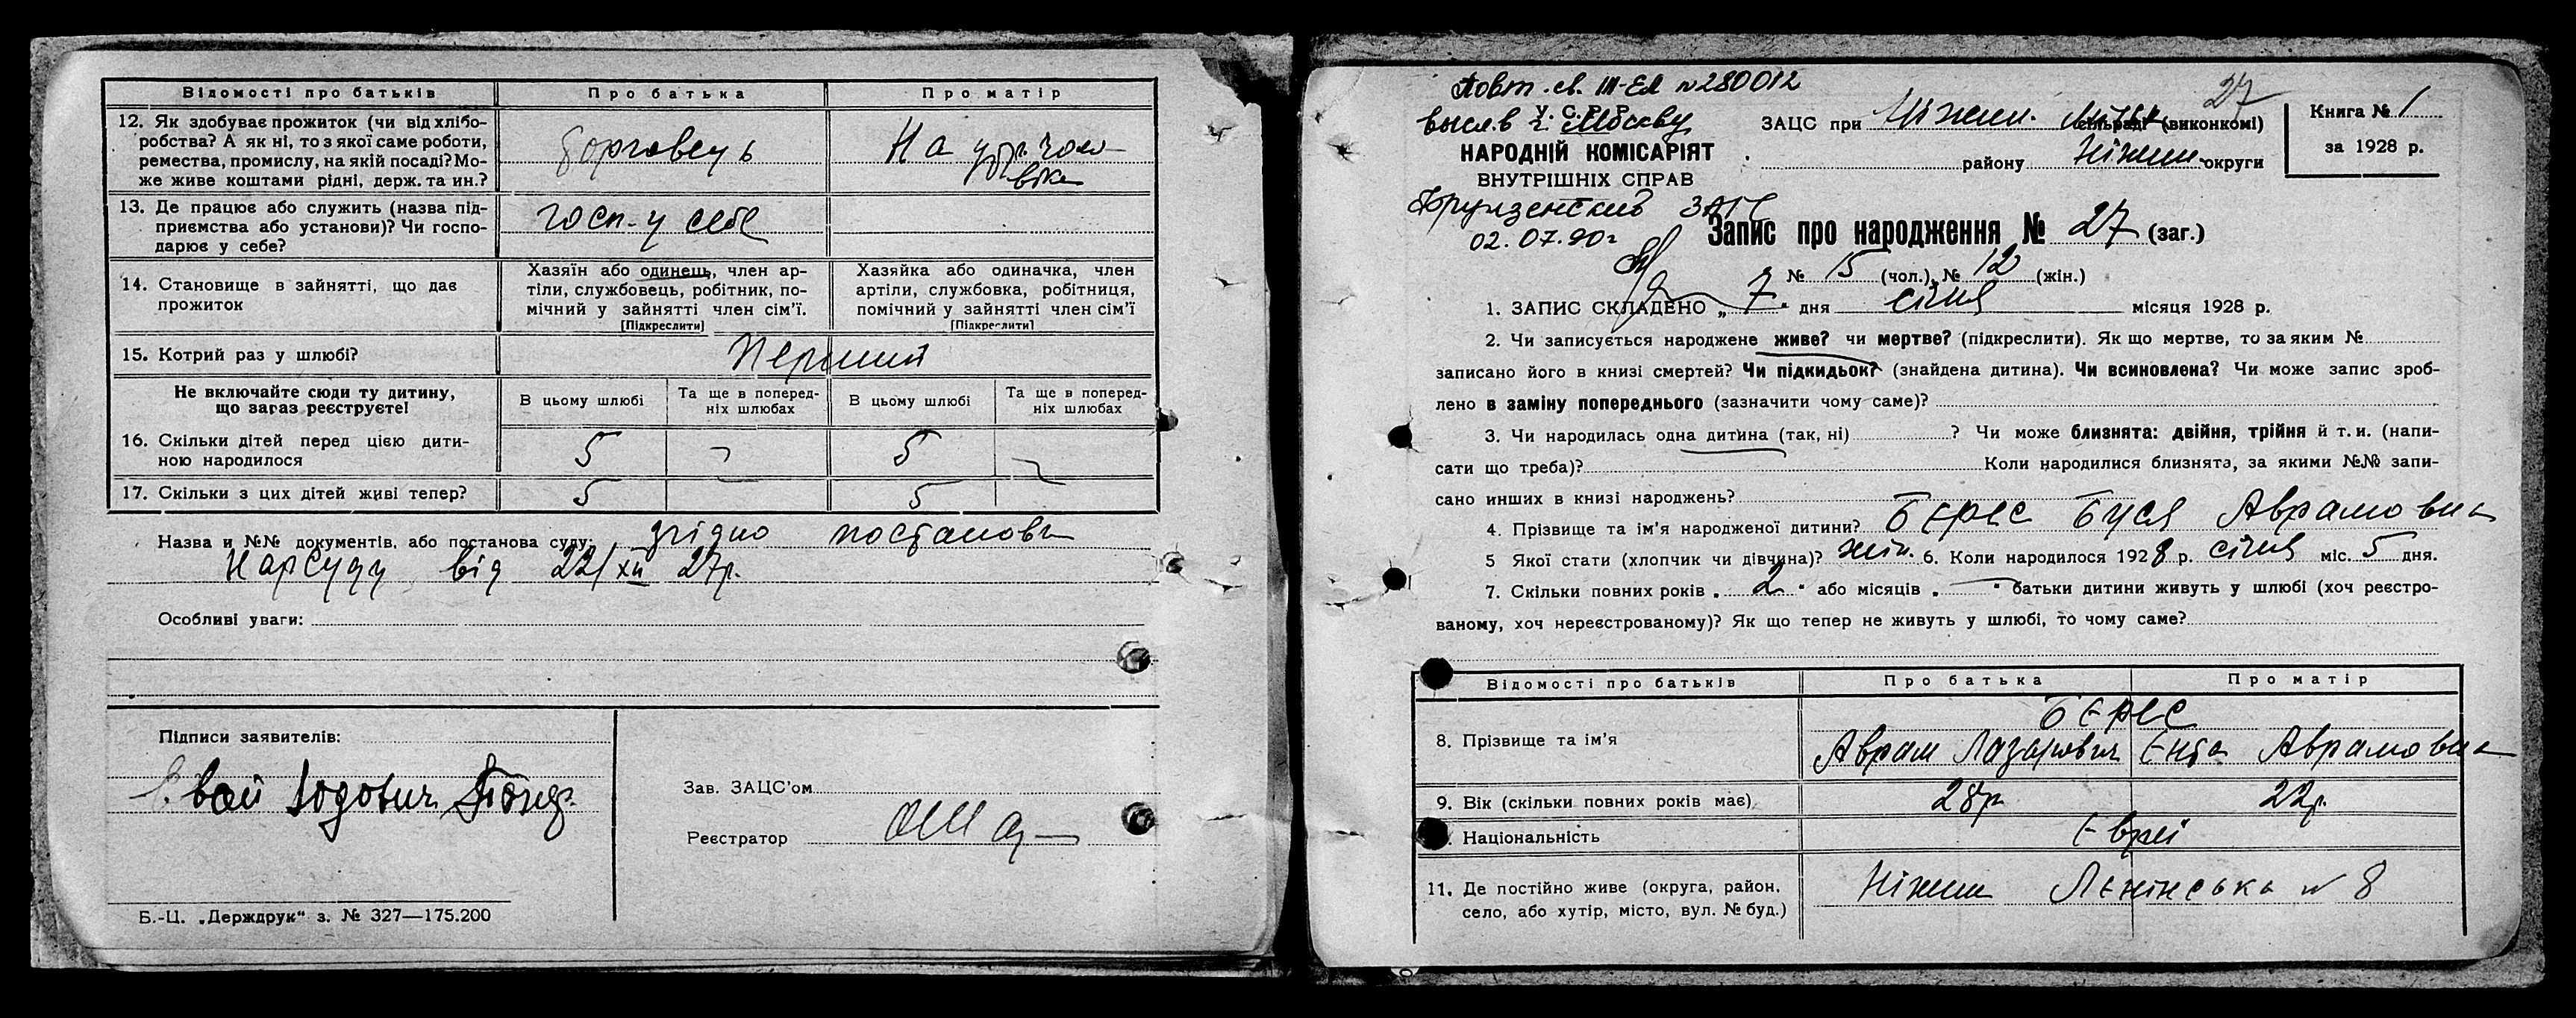 Відомості про батьків Про батька Про матір
12. Як здобуває прожиток (чи від хлібо-
робства? А як ні, то з якої саме роботи,
ремества, промислу, на якій посаді? Мо-
же живе коштами рідні, держ. та ин.?
торговець
На утр. чоло
віка
13. Де працює або служить (назва під-
приємства або установи)? Чи госпо-
дарює у себе?
госп. у себе
14. Становище в зайнятті, що дає
прожиток
Хазяїн або одинець, член ар-
тіли, службовець, робітник, по-
мічний у зайнятті член сім'ї.
[Підкреслити]
Хазяйка або одиначка, член
артіли, службовка, робітниця,
помічний у зайнятті член сім'ї
[Підкреслити]
15. Котрий раз у шлюбі? Перший
Не включайте сюди ту дитину,
що зараз реєструєте!
В цьому шлюбі
Та ще в поперед-
ніх шлюбах
В цьому шлюбі
Та ще в поперед-
ніх шлюбах
16. Скільки дітей перед цією дити-
ною народилося
5 — 5 —
17. Скільки з цих дітей живі тепер? 5 — 5 —
Назва и №№ документів, або постанова суду: згідно постанови
Нарсуду від 22/XII 27р.
Особливі уваги:
Підписи заявителів:
Зав. ЗАЦС'ом
Реєстратор
Б.-Ц. „Держдрук“ з. № 327—175.200
Повт. св. III-ЕЛ №280012
У. С. Р. Р.
высл. в г. Москву
НАРОДНІЙ КОМІСАРІЯТ
ВНУТРІШНІХ СПРАВ
Фрунзенский ЗАГС
02.07.90г
27
ЗАЦС при Ніжин. сільраді (виконкомі)
району Ніжин. округи
Книга № 1
за 1928 р.
Запис про народження № 27 (заг.)
№ 15 (чол.), № 12 (жін.)
1. ЗАПИС СКЛАДЕНО „ 7 “ дня січня місяця 1928 р.
2. Чи записується народжене живе? чи мертве? (підкреслити). Як що мертве, то за яким №
записано його в книзі смертей? Чи підкидьок? (знайдена дитина). Чи всиновлена? Чи може запис зроб-
лено в заміну попереднього (зазначити чому саме)?
3. Чи народилась одна дитина (так, ні) ? Чи може близнята: двійня, трійня й т. и. (напи-
сати що треба)? Коли народилися близнята, за якими №№ запи-
сано инших в книзі народжень?
4. Прізвище та ім'я народженої дитини? Берес Буся Аврамовна
5 Якої стати (хлопчик чи дівчина)? жін. 6. Коли народилося 1928 р. січня міс. 5 дня.
7. Скільки повних років „ 2 “ або місяців „ — “ батьки дитини живуть у шлюбі (хоч реєстро-
ваному, хоч нереєстрованому)? Як що тепер не живуть у шлюбі, то чому саме?
Відомості про батьків Про батька Про матір
Берес
8. Прізвище та ім'я Аврам Лазарович Єнта Аврамовна
9. Вік (скільки повних років має) 28р 22р.
Національність Євреї
11. Де постійно живе (округа, район,
село, або хутір, місто, вул. № буд.)
Ніжин Ленінська № 8